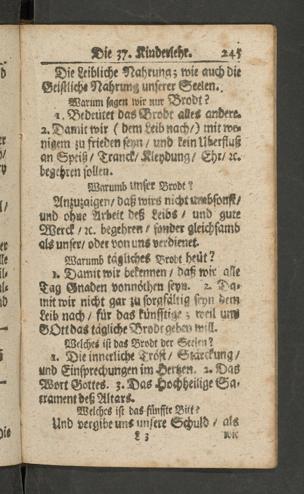 Die 37. Kinderlehr. 245
Die Leibliche Nahrung; wie auch die
Geistliche Nahrung unserer Seelen.
Warum sagen wir nur Brodt?
1. Bedeutet das Brodt alles andere.
2. Damit wir ( dem Leib nach/) mit we-
nigem zu frieden seyn / und kein Uberfluß
an Speiß / Tranck/ Kleydung/ Ehr/ ꝛc.
begehren sollen.
Warumb unser Brodt?
Anzuzaigen/ daß wirs nicht umbsonst/
und ohne Arbeit deß Leibs / und gute
Werck / ꝛc. begehren / sonder gleichsamb
als unser/ oder von uns verdienet.
Warumb tägliches Brodt heüt?
1. Damit wir bekennen / daß wir alle
Tag Gnaden vonnöthen seyn. 2. Da-
mit wir nicht gar zu sorgfältig seyn dem
Leib nach / für das künfftige; weil uns
GOtt das tägliche Brodt geben will.
Welches ist das Brodt der Seelen?
1. Die innerliche Tröst / Stärckung /
und Einsprechungen im Hertzen. 2. Das
Wort Gottes. 3. Das Hochheilige Sa-
crament deß Altars.
Welches ist das fünffte Bitt?
Und vergibe uns unsere Schuld / als
L 3 wie